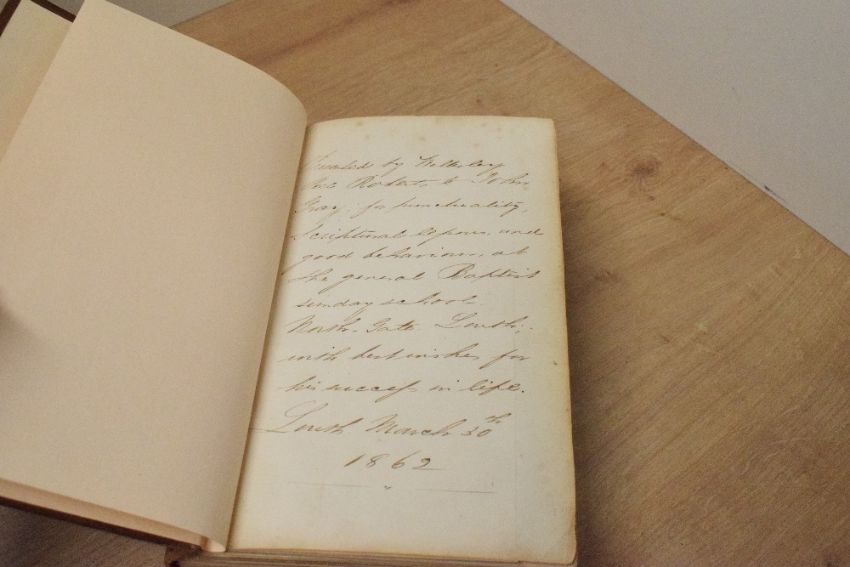 by
Roberts to John
Gray, for punctuality,
Scriptural and
good behaviour, at
the general Baptist
sunday school
North Gate Louth;
with best wishes for
his success in life.
Louth March 30th
1862